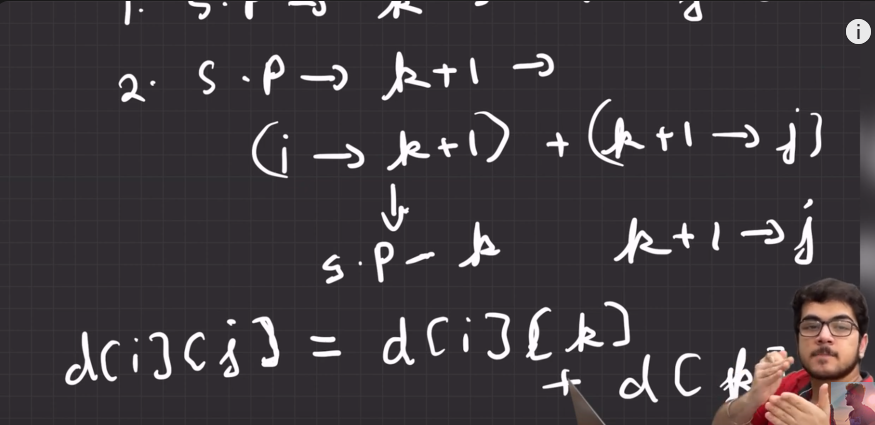 2. S.P → k+1 →
(i → k+1) + (k+1 → j)
↓
S.P - k k+1 → j
d[i][j] = d[i][k]
+ d[k]